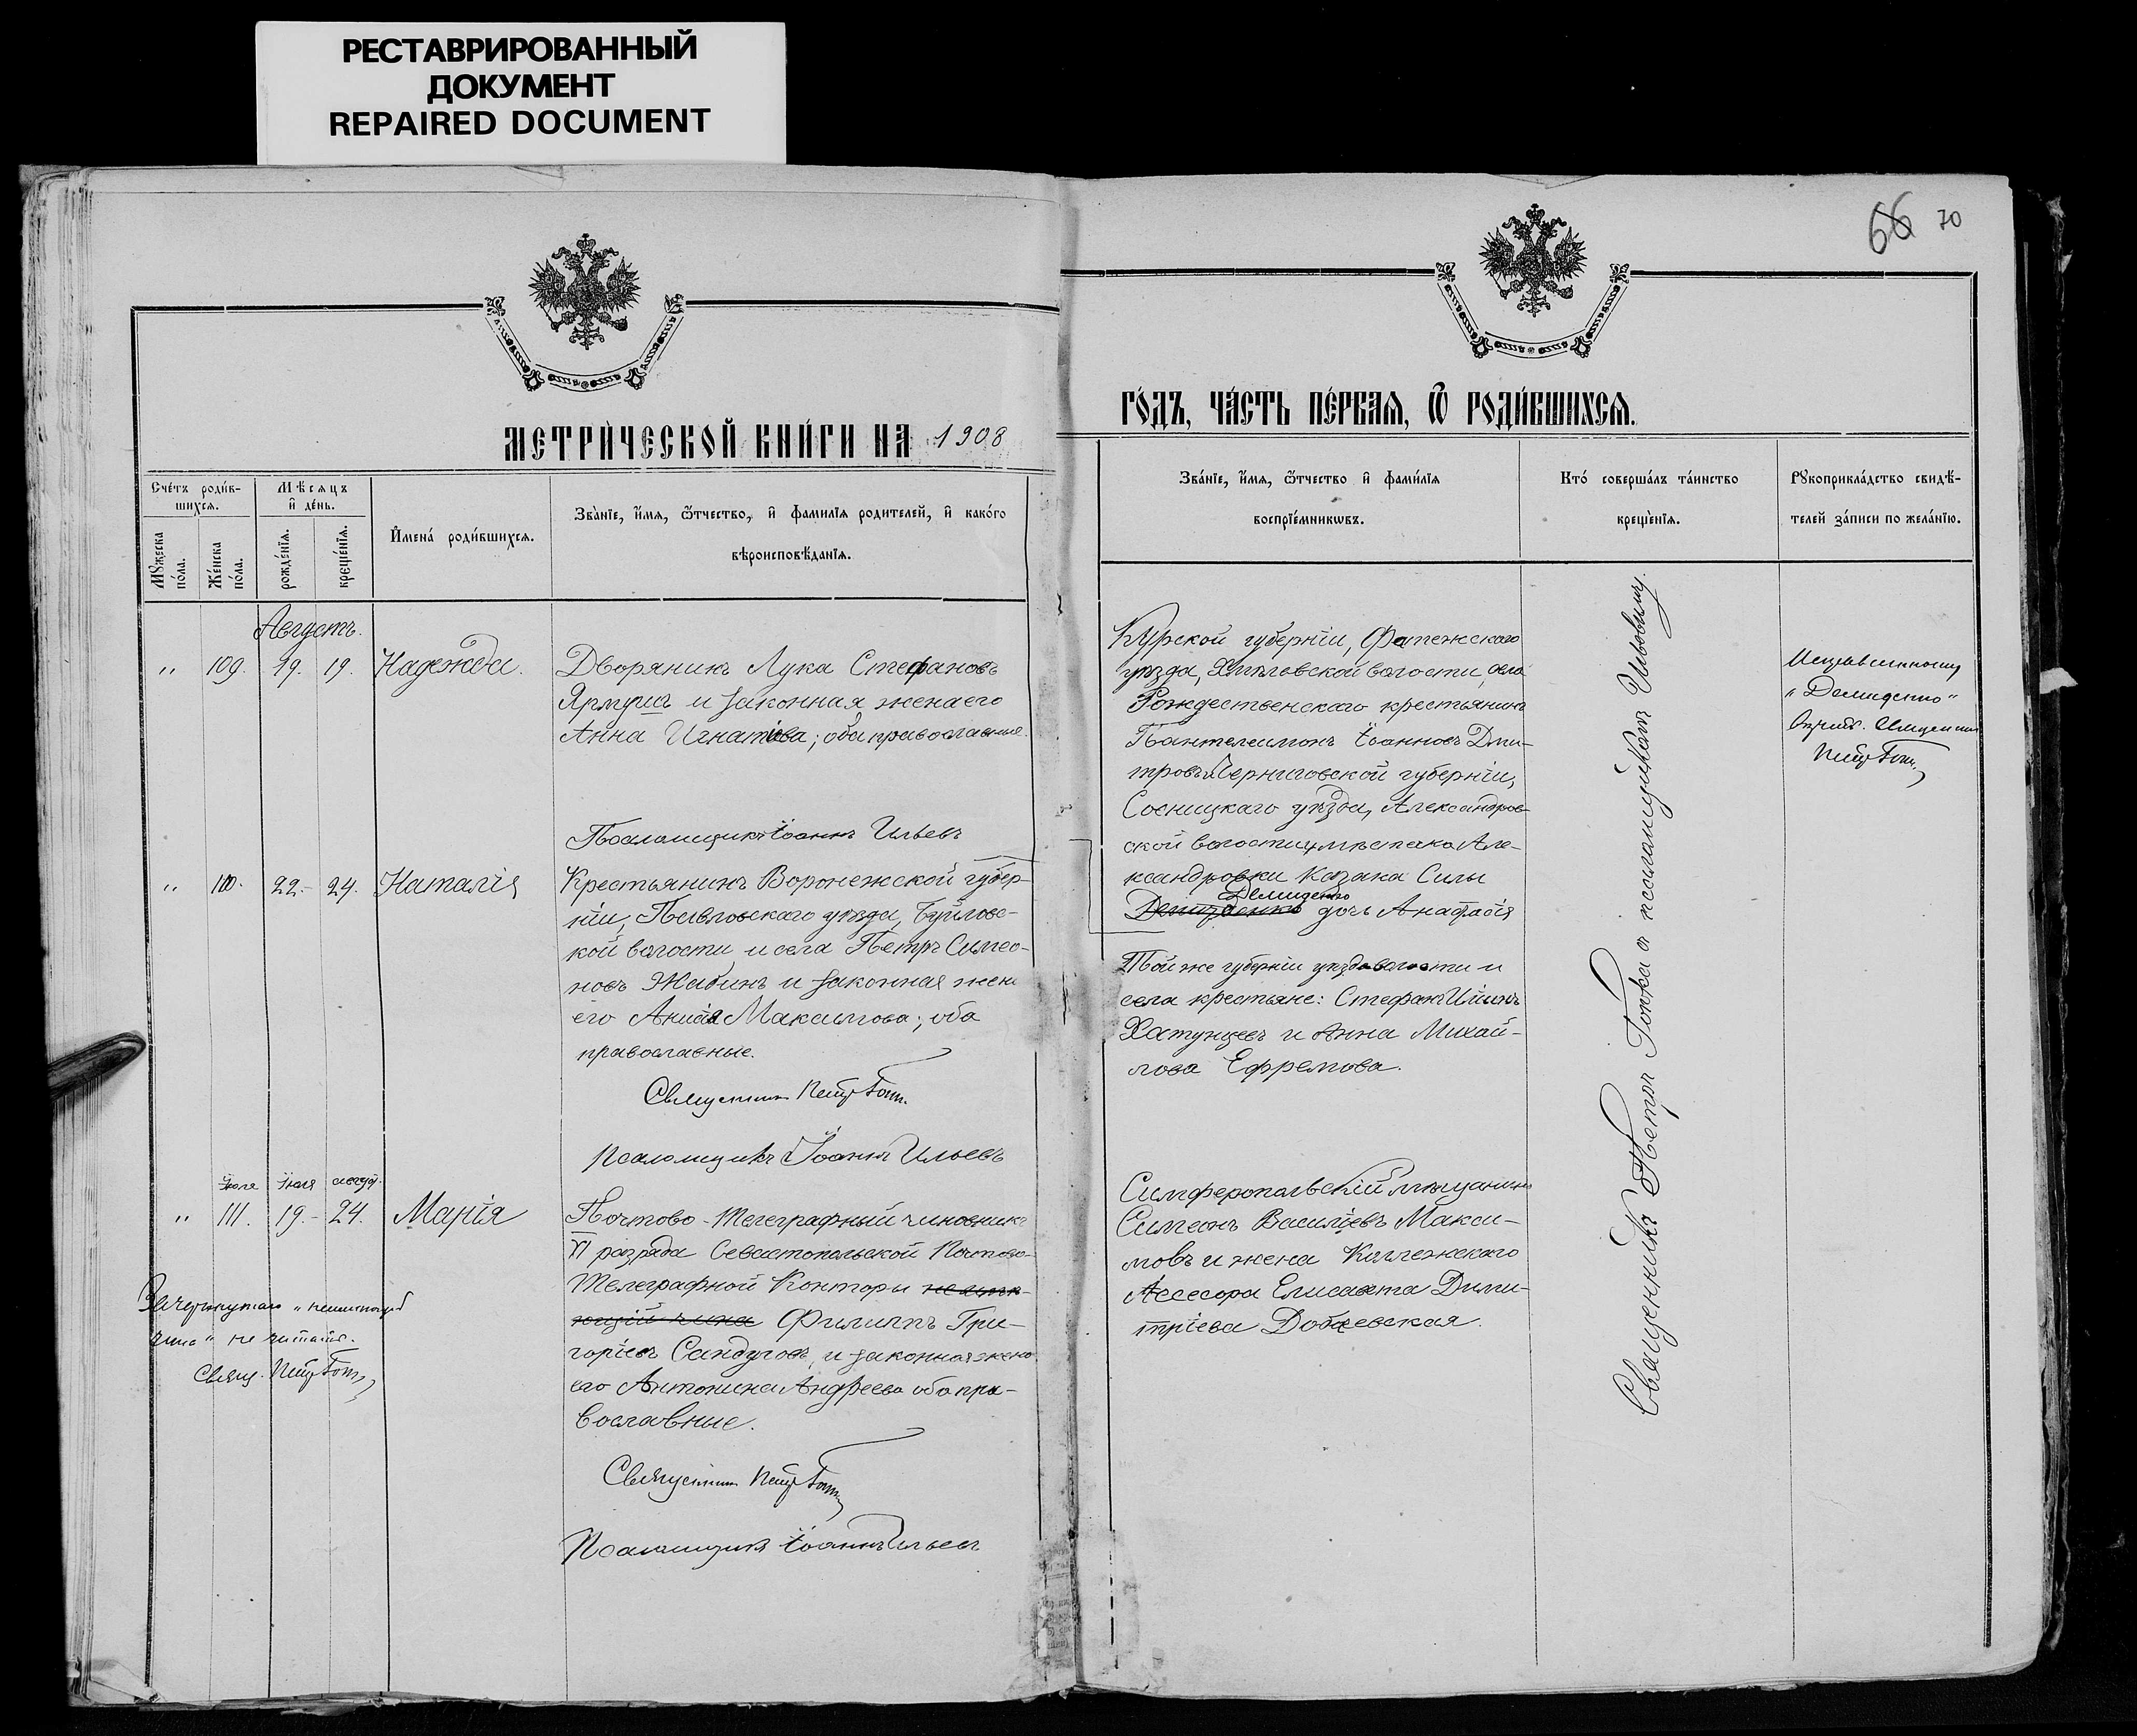 РЕСТАВРИРОВАННЫЙ
ДОКУМЕНТ
REPAIRED DOCUMENT
66 70
МЕТРИ́ЧЕСКОЙ КНИ́ГИ НА 1908
ГО́ДЪ, ЧА́СТЬ ПЕ́РВАѦ, Ѿ РОДИ́ВШИХСѦ.
Сче́тъ роди́в-
шихсѧ.
Мꙋжеска
по́ла.
Же́нска
по́ла.
Мѣсѧцъ
и҆ де́нь.
рожде́нїѧ.
креще́нїѧ.
И҆мена́ роди́вшихсѧ.
Зва́нїе, и҆́мѧ, ѻ҆́тчество, и҆ фамилїѧ родителей, и҆ како́го
вѣроисповѣ́данїѧ.
Зва́нїе, и҆́мѧ, ѻ҆́тчество и҆ фами́лїѧ
воспрїе́мникѡвъ.
Кто́ соверша́лъ та́инство
креще́нїѧ.
Рꙋкоприкла́дство свидѣ́-
телей за́писи по жела́нїю.
Августъ.
" 109. 19. 19. Надежда.
Дворянинъ Лука Стефановъ
Ярмушъ и законная жена его
Анна Игнатіева; оба православные.
Псаломщикъ Іоаннъ Ильевъ
Курской губерніи, Фатежскаго
уѣзда, волости, села
Рождественскаго крестьянинъ
Пантелеимонъ Іоанновъ Дми-
тровъ и Черниговской губерніи,
Сосницкаго уѣзда, Александров-
ской волости, мѣстечка Але-
ксандровки Казака Силы
Демиденко
дочь Анастасія
"Демиденко"
" 110. 22. 24. Наталія
Крестьянинъ Воронежской губер-
ніи, Павловскаго уѣзда, Буйлов-
кой волости и села Петръ Симео-
новъ Жабинъ и законная жена
его Анисія Максимова; оба
православные.
Священникъ Петръ
Псаломщикъ Іоаннъ Ильевъ
Той же губерніи уѣзда волости и
села крестьяне: Стефанъ
Хатунцевъ и Анна Михай-
лова Ефремова.
Іюля Іюля август.
" 111. 19. 24. Марія
Почтово-Телеграфный чиновникъ
VI разряда Севастопольской Почтово-
Телеграфной Конторы неимѣ-
ющій чина Филиппъ Гри-
горіевъ Сандуловъ, и законная жена
его Антонина Андреева оба пра-
вославные.
Священникъ Петръ
Псаломщикъ Іоаннъ Ильевъ
Зачеркнутаго "неимѣющій
чина" не читать.
Свящ. Петръ
Симферопольскій мѣщанинъ
Симеонъ Василіевъ Макси-
мовъ и жена Коллежскаго
Ассесора Елисавета Дими-
тріева Добаевская.
Священникъ Петръ съ псаломщикомъ